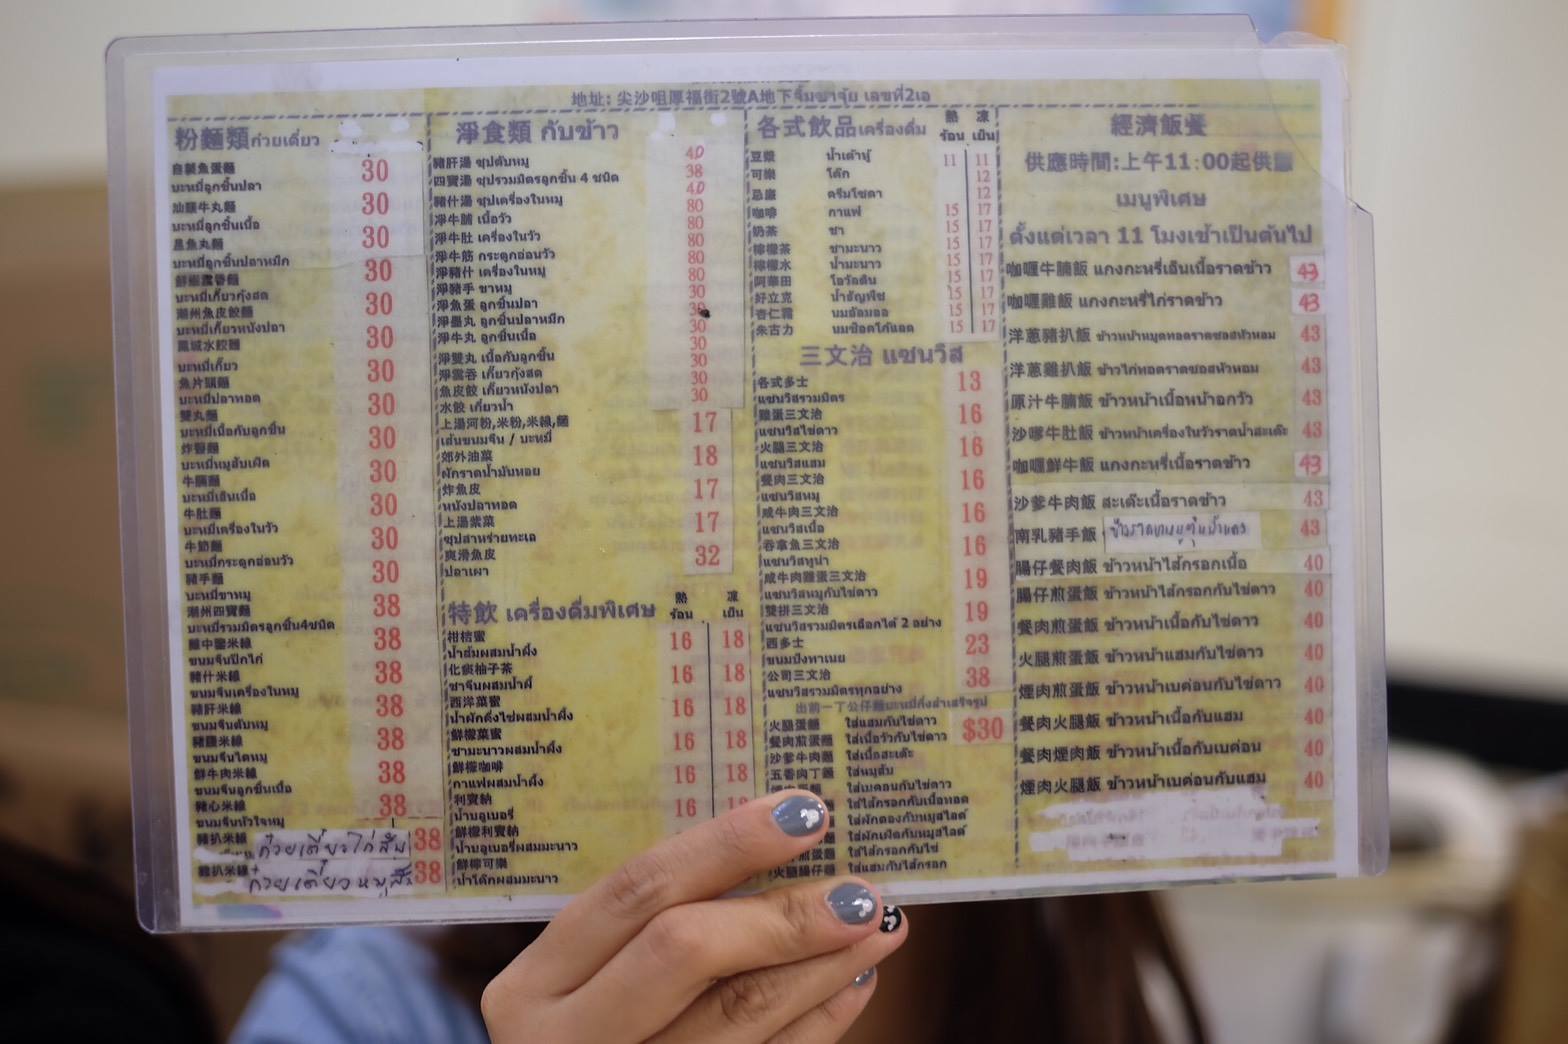 地址: 尖沙咀厚福街2號A地下จิ้มซาจุ่ย เลขที่2เอ
粉麵類ก๋วยเตี๋ยว
自製魚蛋麵
บะหมี่ลูกชิ้นปลา
30
汕頭牛丸麵
บะหมี่ลูกชิ้นเนื้อ
30
墨魚丸麵
บะหมี่ลูกชิ้นปลาหมึก
30
บะหมี่เกี๊ยวกุ้งสด
30
潮州魚皮餃麵
บะหมี่เกี๊ยวหนังปลา
30
鳳城水餃麵
บะหมี่เกี๊ยว
30
魚片頭麵
บะหมี่ปลาทอด
30
雙丸麵
บะหมี่เนื้อกับลูกชิ้น
30
炸醬麵
บะหมี่หมูสับเผ็ด
30
牛腩麵
บะหมี่เอ็นเนื้อ
30
牛肚麵
บะหมี่เครื่องในวัว
30
牛筋麵
บะหมี่กระดูกอ่อนวัว
30
豬手麵
บะหมี่ขาหมู
30
潮州四寶麵
บะหมี่รวมมิตรลูกชิ้น4ชนิด
38
雞中翼米線
ขนมจีนปีกไก่
38
豬什米線
ขนมจีนเครื่องในหมู
38
豬肝米線
ขนมจีนตับหมู
38
豬腰米線
ขนมจีนไตหมู
38
鮮牛肉米線
ขนมจีนลูกชิ้นเนื้อ
38
豬心米線
ขนมจีนหัวใจหมู
38
豬扒米線 ก๋วยเตี๋ยวไก่สับ 38
雞扒米線 ก๋วยเตี๋ยวหมูสับ 38
淨食類 กับข้าว
豬肝湯 ซุปตับหมู 40
四寶湯 ซุปรวมมิตรลูกชิ้น 4 ชนิด 38
豬什湯 ซุปเครื่องในหมู 40
淨牛腩 เนื้อวัว 80
淨牛肚 เครื่องในวัว 80
淨牛筋 กระดูกอ่อนวัว 80
淨豬什 เครื่องในหมู 80
淨豬手 ขาหมู 80
淨魚蛋 ลูกชิ้นปลา 30
淨墨丸 ลูกชิ้นปลาหมึก 30
淨牛丸 ลูกชิ้นเนื้อ 30
淨雙丸 เนื้อกับลูกชิ้น 30
淨雲吞 เกี๊ยวกุ้งสด 30
魚皮餃 เกี๊ยวหนังปลา 30
水餃 เกี๊ยวน้ำ 30
上湯河粉,米粉,米線,麵
เส้นขนมจีน / บะหมี่
17
郊外油菜
ผักราดน้ำมันหอย
18
炸魚皮
หนังปลาทอด
17
上湯紫菜
ซุปสาหร่ายทะเล
17
爽滑魚皮
ปลาเผา
32
特飲 เครื่องดื่มพิเศษ 熱 ร้อน 凍 เย็น
柑桔蜜
น้ำส้มผสมน้ำผึ้ง
16 18
化痰柚子茶
ชาจีนผสมน้ำผึ้
16 18
西洋菜蜜
น้ำผักดึงไช่ผสมน้ำผึ้ง
16 18
鮮檬菜蜜
ชามะนาวผสมน้ำผึ้ง
16 18
鮮檬咖啡
กาแฟผสมน้ำผึ้ง
16 18
利賓納
น้ำบลูเบอรี่
16 18
鮮檬利賓納
น้ำบลูเบอรี่ผสมมะนาว
鮮檸可樂
น้ำโค้กผสมมะนาว
各式飲品เครื่องดื่ม 熱 ร้อน 凍 เย็น
豆漿 น้ำเต้าหู้ 11 11
可樂 โค๊ก 12
忌廉 ครีมโซดา 12
咖啡 กาแฟ 15 17
奶茶 ชา 15 17
檸檬茶 ชามะนาว 15 17
檸檬水 น้ำมะนาว 15 17
阿華田 โอวัลติน 15 17
好立克 น้ำธัญพืช 15 17
杏仁霜 นมอัลมอล 15 17
朱古力 นมช็อคโก้แลต 15 17
三文治 แซนวิส
各式多士
แซนวิสรวมมิตร
13
雞蛋三文治
แซนวิสไข่ดาว
16
火腿三文治
แซนวิสแฮม
16
餐肉三文治
แซนวิสหมู
16
咸牛肉三文治
แซนวิสเนื้อ
16
吞拿魚三文治
แซนวิสทูน่า
16
咸牛肉雞蛋三文治
แซนวิสหมูกับไข่ดาว
19
雙拼三文治
แซนวิสรวมมิตรเลือกได้ 2 อย่าง
19
西多士
ขนมปังทาเนย
23
公司三文治
แซนวิสรวมมิตรทุกอย่าง
38
出前一丁公仔麵บะหมี่กึ่งสำเร็จรูป
火腿蛋麵 ใส่แฮมกับไข่ดาว
餐肉煎蛋麵 ใส่เนื้อวัวกับไข่ดาว
$30
沙爹牛肉麵 ใส่เนื้อสะเต๊ะ
五香肉丁麵 ใส่หมูสับ
ใส่เบคอนกับไข่ดาว
ใส่ไส้กรอกกับเนื้อทอด
ใส่ผักดองกับหมูสไลด์
ใส่ผักเผ็ดกับหมูสไลด์
煎蛋麵 ใส่ไส้กรอกกับไข่
火腿腸仔麵 ใส่แฮมกับไส้กรอก
經濟飯餐
供應時間:上午11:00起供應
เมนูพิเศษ
ตั้งแต่เวลา 11 โมงเช้าเป็นต้นไป
咖喱牛腩飯 แกงกะหรี่เอ็นเนื้อราดข้าว 43
咖喱雞飯 แกงกะหรี่ไก่ราดข้าว 43
洋蔥豬扒飯 ข้าวหน้าหมูทอดราดซอสหัวหอม 43
洋蔥雞扒飯 ข้าวไก่ทอดราดซอสหัวหอม 43
原汁牛腩飯 ข้าวหน้าเนื้อหน้าอกวัว 43
沙嗲牛肚飯 ข้าวหน้าเครื่องในวัวราดน้ำสะเต๊ะ 43
咖喱鮮牛飯 แกงกะหรี่เนื้อราดข้าว 43
沙爹牛肉飯 สะเต๊ะเนื้อราดข้าว 43
南乳豬手飯 43
腸仔餐肉飯 ข้าวหน้าไส้กรอกเนื้อ 40
腸仔煎蛋飯 ข้าวหน้าไส้กรอกกับไข่ดาว 40
餐肉煎蛋飯 ข้าวหน้าเนื้อกับไข่ดาว 40
火腿煎蛋飯 ข้าวหน้าแฮมกับไข่ดาว 40
煙肉煎蛋飯 ข้าวหน้าเบค่อนกับไข่ดาว 40
餐肉火腿飯 ข้าวหน้าเนื้อกับแฮม 40
餐肉煙肉飯 ข้าวหน้าเนื้อกับเบค่อน 40
煙肉火腿飯 ข้าวหน้าเบค่อนกับแฮม 40